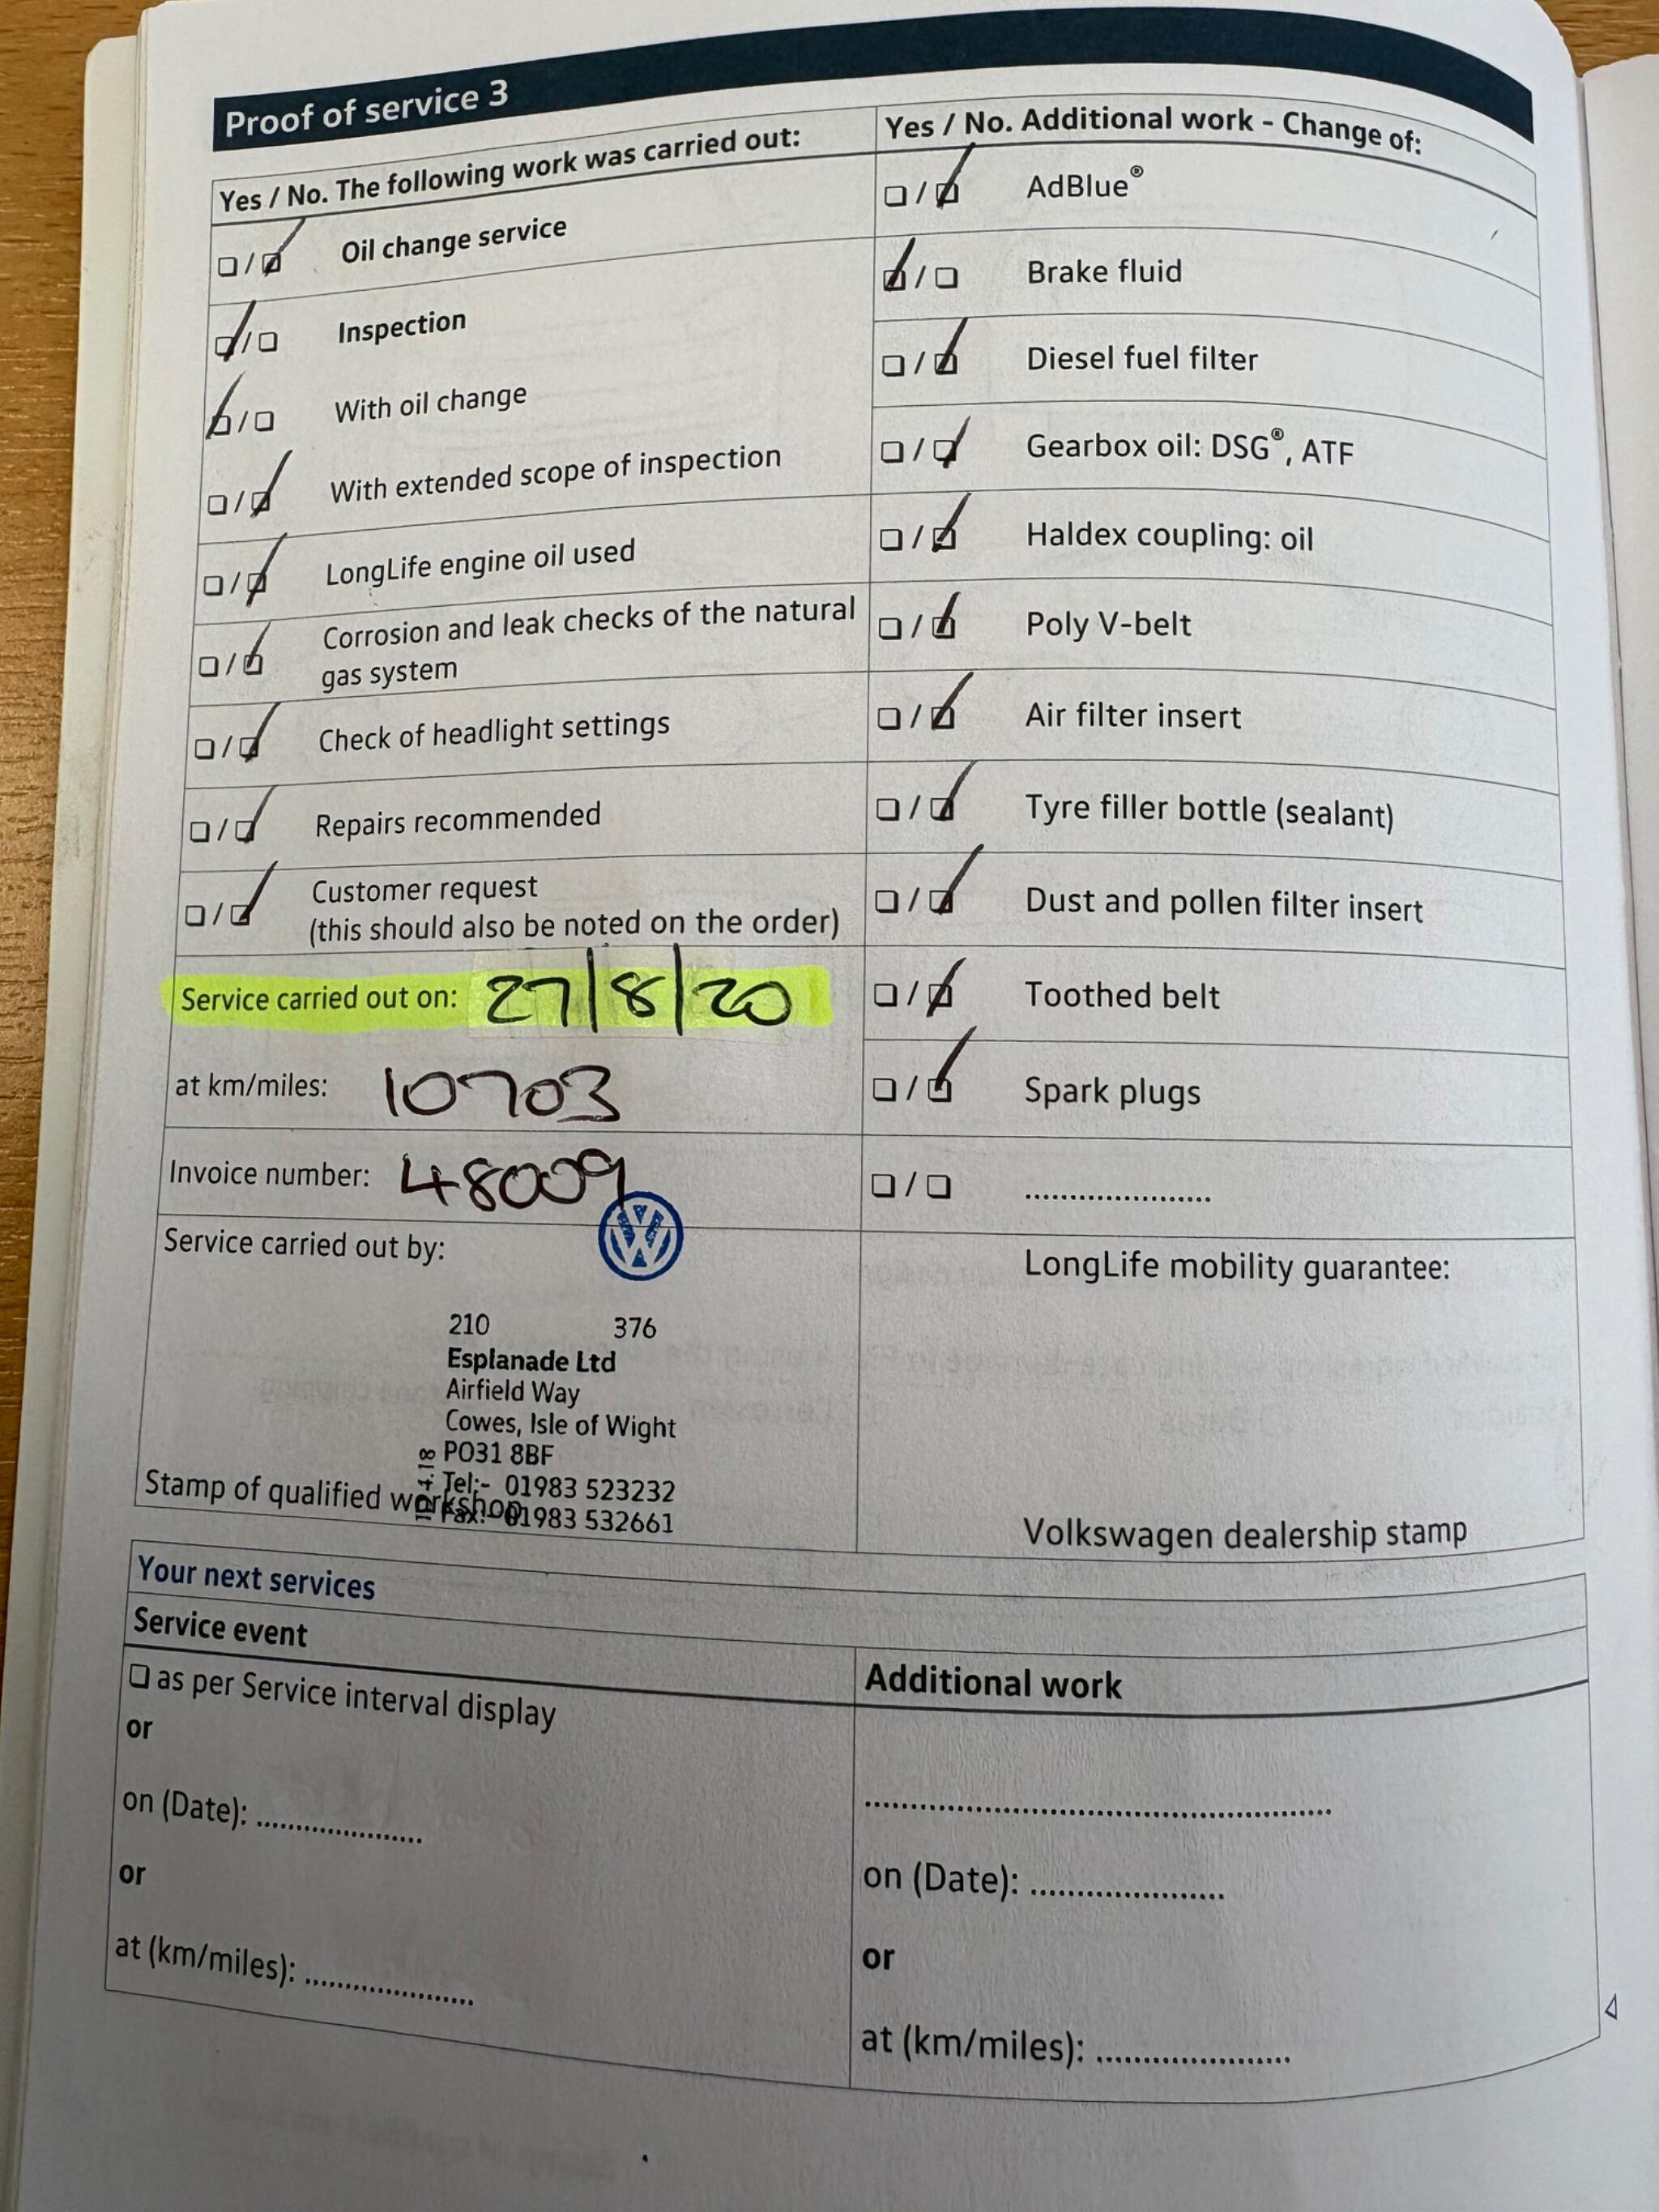 Proof of service 3
Yes / No. The following work was carried out:
☐ / ☑ Oil change service
☑ / ☐ Inspection
☑ / ☐ With oil change
☐ / ☑ With extended scope of inspection
☐ / ☑ LongLife engine oil used
☐ / ☑ Corrosion and leak checks of the natural
gas system
☐ / ☑ Check of headlight settings
☐ / ☑ Repairs recommended
☐ / ☑ Customer request
(this should also be noted on the order)
Service carried out on: 27/8/20
at km/miles: 10703
Invoice number: 48009
Service carried out by:
VW
210 376
Esplanade Ltd
Airfield Way
Cowes, Isle of Wight
PO31 8BF
Tel:- 01983 523232
Fax:- 01983 532661
Stamp of qualified workshop
Yes / No. Additional work - Change of:
☐ / ☑ AdBlue®
☑ / ☐ Brake fluid
☐ / ☑ Diesel fuel filter
☐ / ☑ Gearbox oil: DSG®, ATF
☐ / ☑ Haldex coupling: oil
☐ / ☑ Poly V-belt
☐ / ☑ Air filter insert
☐ / ☑ Tyre filler bottle (sealant)
☐ / ☑ Dust and pollen filter insert
☐ / ☑ Toothed belt
☐ / ☑ Spark plugs
☐ / ☐ .....................
LongLife mobility guarantee:
Volkswagen dealership stamp
Your next services
Service event
☐ as per Service interval display
or
on (Date): .....................
or
at (km/miles): .....................
Additional work
.....................................................
on (Date): .....................
or
at (km/miles): .....................